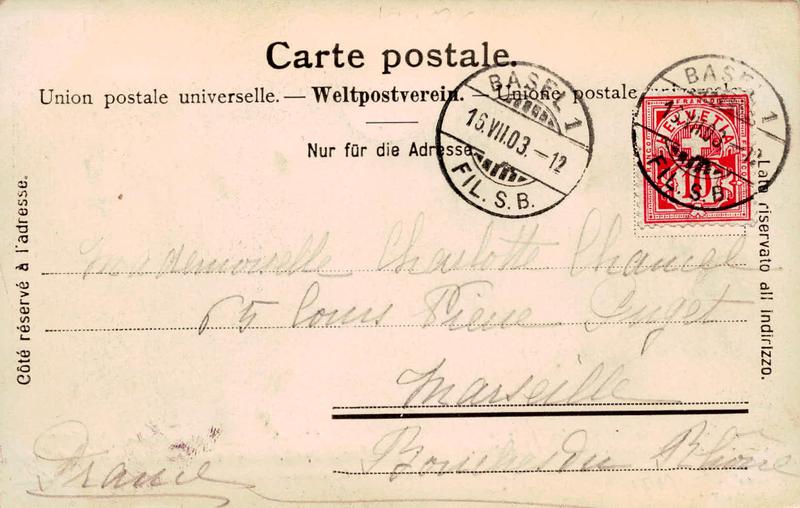 Carte postale.
Union postale universelle. — Weltpostverein. — Unione postale
Nur für die Adresse
BASEL 1
16.VII.03.–12
FIL. S. B.
BASEL 1
FIL. S. B.
FRANCO
HELVETIA
10
Côté réservé à l'adresse.
Lato riservato all indirizzo.
Mademoiselle Charlotte
65 Cours Pierre Puget
Marseille
Bouches du Rhône
France